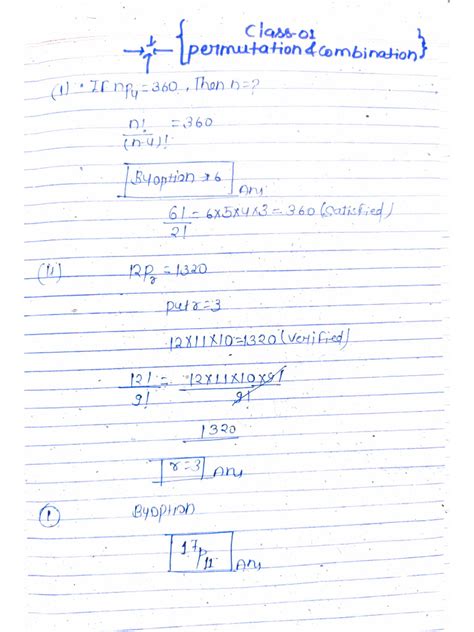 Class-01
{permutation & combination}
(1) • If nP₄=360, Then n=?
n!/(n-4)! = 360
By option → 6 Ans
6!/2! = 6x5x4x3 = 360 (Satisfied)
(11) 12Pr = 1320
put r=3
12x11x10=1320 (verified)
12!/9! = 12x11x10x9!/9!
1320
r=3 Ans
(1) By option
17P₁₁ Ans